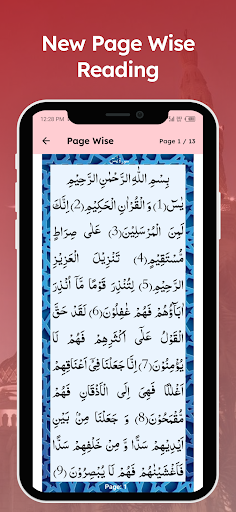 New Page Wise
Reading
12:28 PM
Page Wise
Page 1 / 13
بِسْمِ اللّٰهِ الرَّحْمٰنِ الرَّحِيْمِ
يٰسٓ(1) وَ الْقُرْاٰنِ الْحَكِيْمِ(2) اِنَّكَ
لَمِنَ الْمُرْسَلِيْنَ(3) عَلٰى صِرَاطٍ
مُّسْتَقِيْمٍ(4) تَنْزِيْلَ الْعَزِيْزِ
الرَّحِيْمِ(5) لِتُنْذِرَ قَوْمًا مَّاۤ اُنْذِرَ
اٰبَآؤُهُمْ فَهُمْ غٰفِلُوْنَ(6) لَقَدْ حَقَّ
الْقَوْلُ عَلٰۤى اَكْثَرِهِمْ فَهُمْ لَا
يُؤْمِنُوْنَ(7) اِنَّا جَعَلْنَا فِيْۤ اَعْنَاقِهِمْ
اَغْلٰلًا فَهِيَ اِلَى الْاَذْقَانِ فَهُمْ
مُّقْمَحُوْنَ(8) وَ جَعَلْنَا مِنْۢ بَيْنِ
اَيْدِيْهِمْ سَدًّا وَّ مِنْ خَلْفِهِمْ سَدًّا
فَاَغْشَيْنٰهُمْ فَهُمْ لَا يُبْصِرُوْنَ(9)
Page: 1